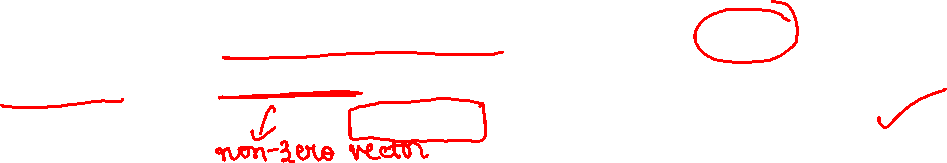 non-zero vector